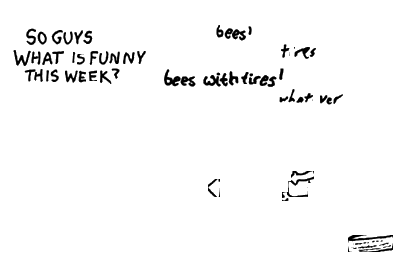 SO GUYS
WHAT IS FUNNY
THIS WEEK?
bees!
tires
bees with tires!
whatever